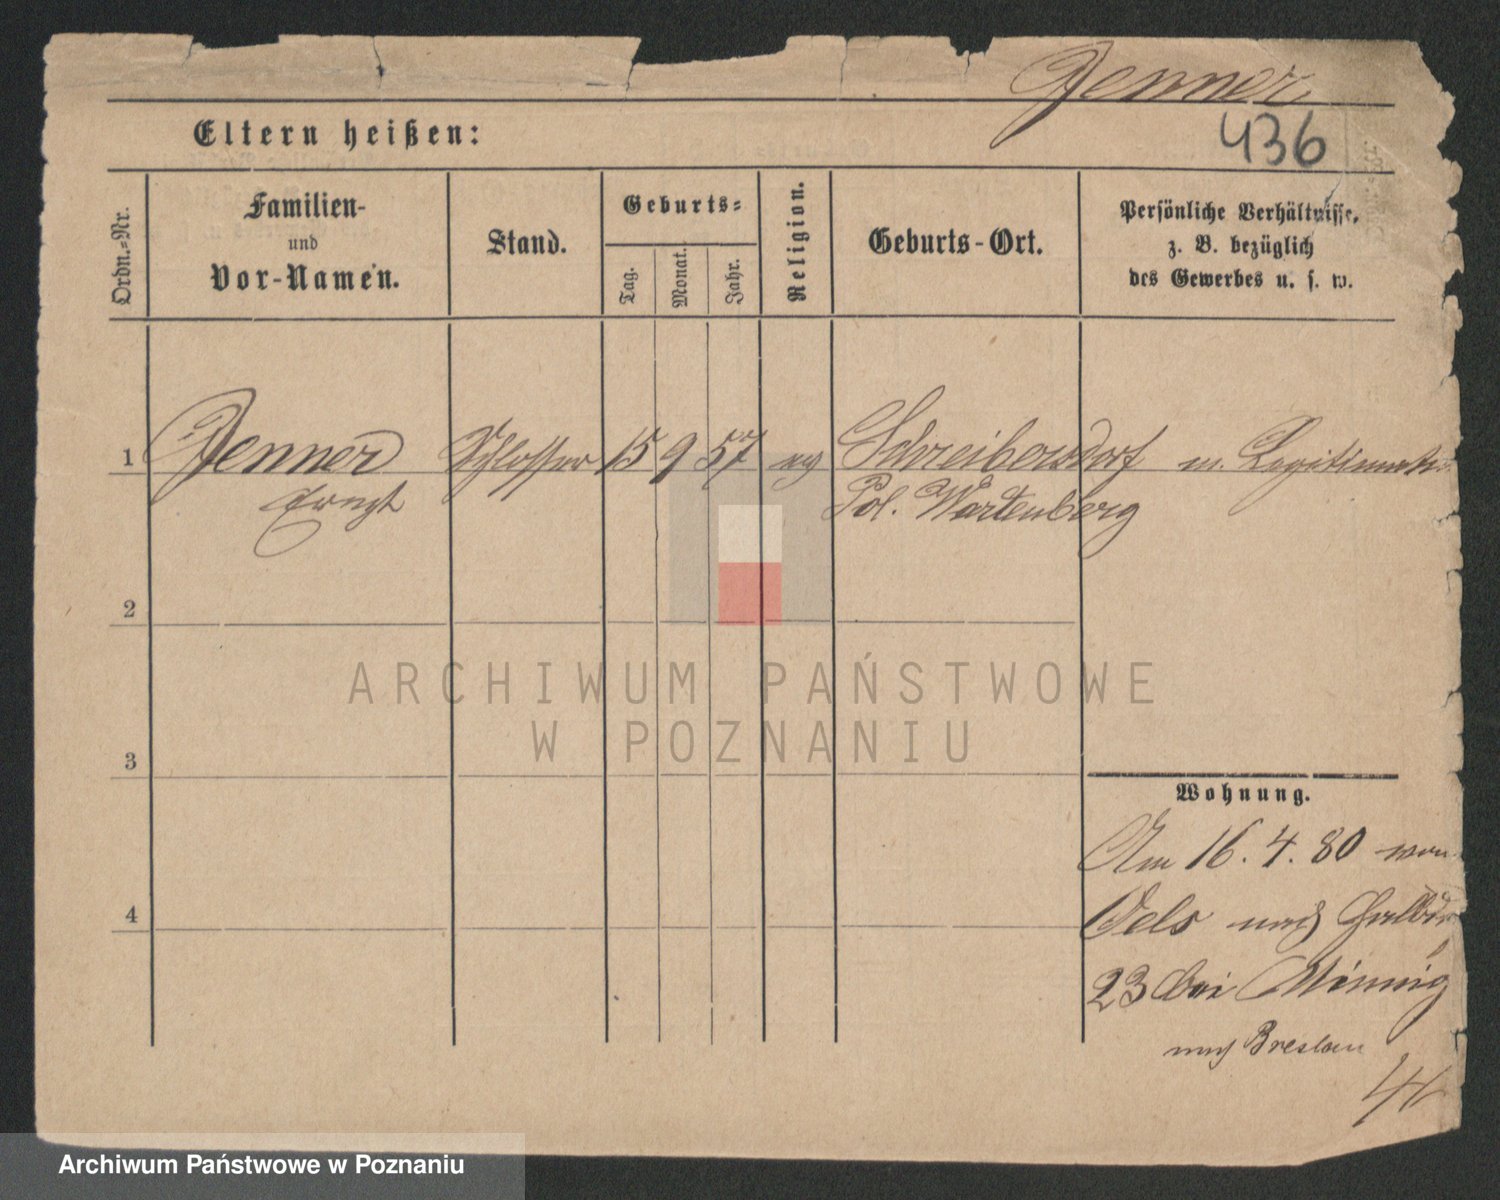 Jenner
436
Eltern heißen:
Ordn.-Nr.
Familien-
und
Vor-Namen.
Stand.
Geburts-
Tag.
Monat.
Jahr.
Religion.
Geburts-Ort.
Persönliche Verhältnisse,
z. B. bezüglich
des Gewerbes u. s. w.
1 Jenner Schlosser 15 9 57 ev Schreibersdorf m. Legitimat
Ernst Pol. Wartenberg
2
3
4
Wohnung.
Am 16. 4. 80 von
Oels nach
23 bei Minnig
nach Breslau
ARCHIWUM PAŃSTWOWE
W POZNANIU
Archiwum Państwowe w Poznaniu